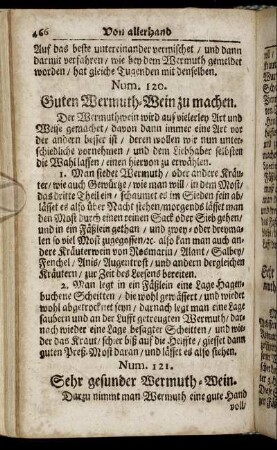 466 Von allerhand
Auf das beste untereinander vermischet / und dann
darmit verfahren / wie bey dem Wermuth gemeldet
worden / hat gleiche Tugenden mit denselben.
Num. 120.
Guten Wermuth-Wein zu machen.
Der Wermuthwein wird auf vielerley Art und
Weise gemachet / davon dann immer eine Art vor
der andern besser ist / deren wollen wir nun unter-
schiedliche vornehmen / und dem Liebhaber selbsten
die Wahl lassen / einen hiervon zu erwählen.
1. Man siedet Wermuth / oder andere Kräu-
ter / wie auch Gewürtze / wie man will / in dem Most /
das dritte Theil ein / schaumet es im Sieden fein ab /
lässet es also über Nacht stehen / morgends lässet man
den Most durch einen reinen Sack oder Sieb gehen /
und in ein Fäßlein gethan / und zwey- oder dreyma-
len so viel Most zugegossen / ꝛc. also kan man auch an-
dere Kräuterwein von Rosmarin / Alant / Salbey /
Fenchel / Anis / Augentrost / und andern dergleichen
Kräutern / zur Zeit des Lesens bereiten.
2. Man legt in ein Fäßlein eine Lage Hagen-
buchene Scheitten / die wohl gewässert / und wieder
wohl abgetrocknet seyn / darnach legt man eine Lage
saubern und an der Lufft getreugten Wermuth / dar-
nach wieder eine Lage besagter Scheitten / und wie-
der das Kraut / schier biß auf die Helffte / giesset dann
guten Preß-Most daran / und lässet es also stehen.
Num. 121.
Sehr gesunder Wermuth-Wein.
Darzu nimmt man Wermuth eine gute Hand
voll /